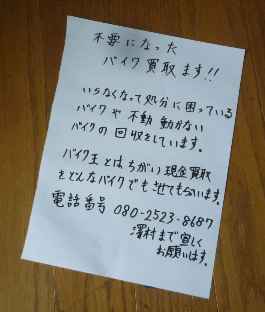 不要になった
バイク買取ます!!
いらなくなって処分に困っている
バイクや不動 動かない
バイクの回収をしています。
バイク王とはちがい現金買取
をどんなバイクでもさせてもらいます。
電話番号 080-2523-8687
澤村まで宜しく
お願いします。